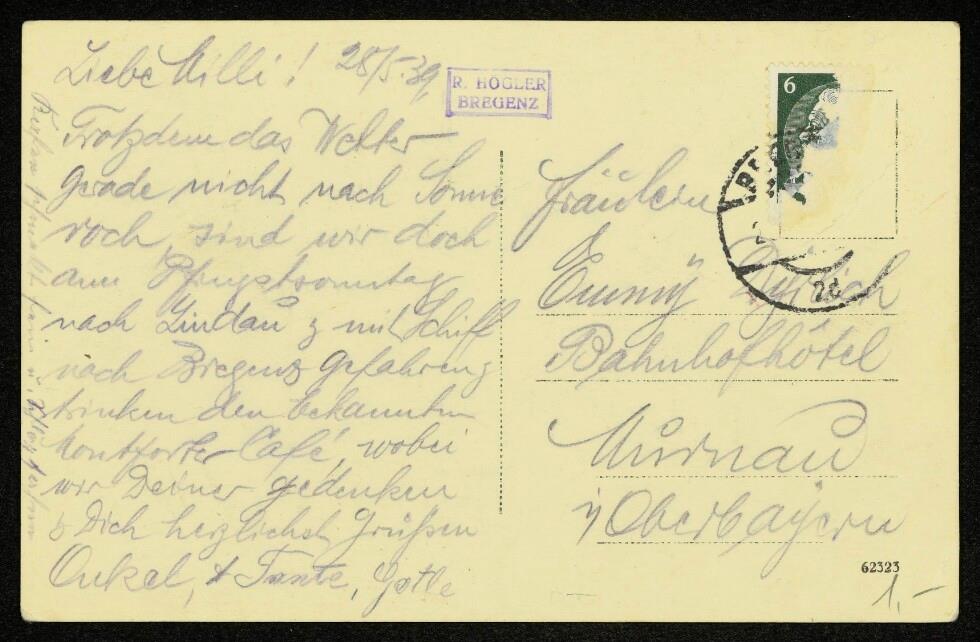 Liebe Milli! 28/5.39
R. HÖGLER
BREGENZ
Trotzdem das Wetter
gerade nicht nach Sonne
roch, sind wir doch
am Pfingstsonntag
nach Lindau & mit Schiff
nach Bregenz gefahren &
trinken den bekannten
Montforter Café, wobei
wir Deiner gedenken
& Dich herzlichst Grüßen
Onkel, & Tante,
6
2d
Fräulein
Emmy
Bahnhofhôtel
Murnau
i/Oberbayern
62323
1,-